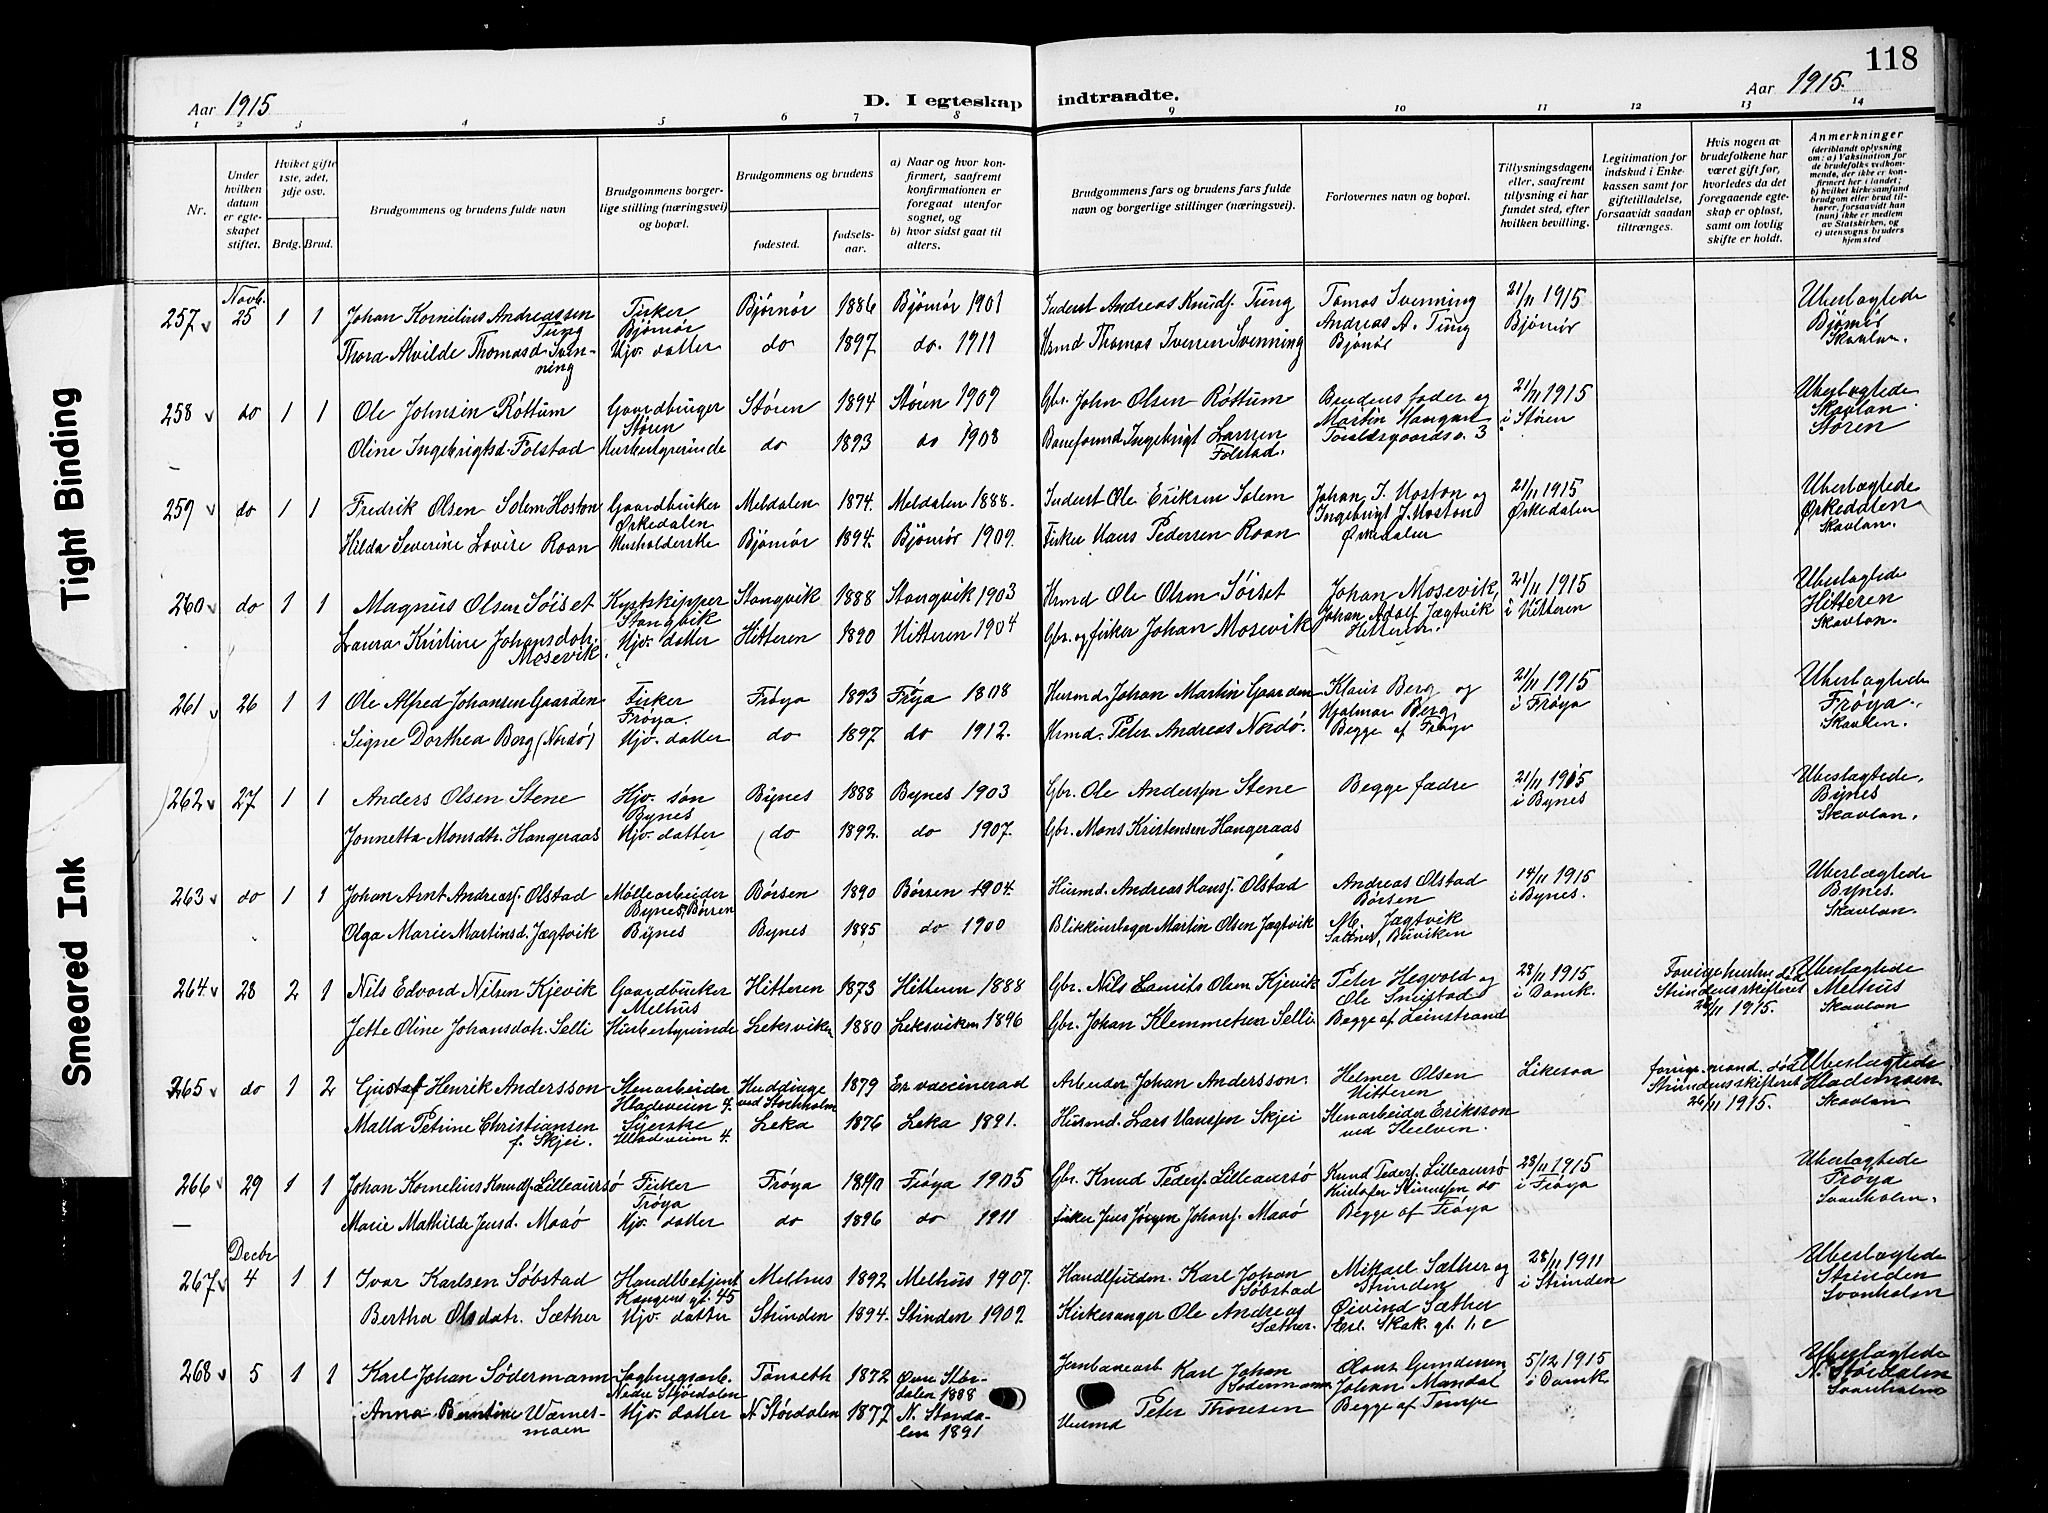 118
Aar 1915
D. I egteskap indtraadte.
Aar 1915.
1 2 3 4 5 6 7 8 9 10 11 12 13 14
Nr.
Under hvilken datum er egteskapet stiftet.
Hviket gifte 1ste, 2det, 3dje osv.
Brdg. Brud.
Brudgommens og brudens fulde navn
Brudgommens borgerlige stilling (næringsvei) og bopæl.
Brudgommens og brudens
fødested.
fødselsaar.
a) Naar og hvor konfirmert, saafremt konfirmationen er foregaat utenfor sognet, og
b) hvor sidst gaat til alters.
Brudgommens fars og brudens fars fulde navn og borgerlige stillinger (næringsvei).
Forlovernes navn og bopæl.
Tillysningsdagene eller, saafremt tillysning ei har fundet sted, efter hvilken bevilling.
Legitimation for indskud i Enkekassen samt for giftetilladelse, forsaavidt saadan tiltrænges.
Hvis nogen av brudefolkene har været gift før, hvorledes da det foregaaende egteskap er opløst, samt om lovlig skifte er holdt.
Anmerkninger (deriblandt oplysning om: a) Vaksination for de brudefolks vedkommende, der ikke er konfirmert her i landet; b) hvilket kirkesamfund brudgom eller brud tilhører, forsaavidt han (hun) ikke er medlem av Statskirken, og c) utensogns bruders hjemsted
Novb.
257 25 1 1 Johan Kornelius Andreassen Tung Fisker Bjørnør Bjørnør 1886 Bjørnør 1901 Inderst Andreas Knudf. Tung Tomas Svenning Andreas A. Tung Bjørnør 21/11 1915 Bjørnør Ubeslægtede Bjørnør Skavlan.
Thora Alvilde Thomasd. Svenning Hjv. datter do 1897 do. 1911 Hrmd Thomas Iversen Svenning
258 do 1 1 Ole Johnsen Røttum Gaardbruger Støren Støren 1894 Støren 1909 Gbr. John Olsen Røttum Brudens fader og Martin Haugan Toraldsgaards v. 3 21/11 1915 i Støren Ubeslægtede Skavlan Støren
Oline Ingebrigtsd. Folstad Husbestyrerinde do 1893 do 1908 Baneformand Ingebrigt Larsen Folstad.
259 do 1 1 Fredrik Olsen Solem Hoston Gaardbruker Ørkedalen Meldalen 1874. Meldalen 1888. Inderst Ole Eriksen Solem Johan J. Hoston og Ingebrigt J. Hoston Ørkedalen 21/11 1915 Ørkedalen Ubeslægtede Ørkedalen Skavlan.
Hilda Severine Lovise Roan Husholderske Bjørnør 1894. Bjørnør 1909. Fisker Hans Pedersen Roan
260 do 1 1 Magnus Olsen Søiset Kystskipper Stangvik Stangvik 1888 Stangvik 1903 Hrmd Ole Olsen Søiset Johan Mosevik, Johan Adolf Jægtvik Hitteren. 21/11 1915 i Hitteren Ubeslægtede Hitteren Skavlan.
Laura Kristine Johansdatr. Mosevik. Hjv. datter Hitteren 1890 Hitteren 1904 Gbr. og fisker Johan Mosevik
261 26 1 1 Ole Alfred Johansen Gaarden Fisker Frøya. Frøya 1893 Frøya 1808 Husmd. Johan Martin Gaarden Klaus Berg og Hjalmar Berg Begge af Frøya 21/11 1915 i Frøya Ubeslægtede Frøya. Skavlan.
Signe Dorthea Berg (Nordø) Hjv. datter do 1897 do 1912. Hrmd. Peter Andreas Nordø.
262 27 1 1 Anders Olsen Stene Hjv. søn Bynes Bynes 1888 Bynes 1903 Gbr. Ole Anderssen Stene Begge fædre 21/11 1915 i Bynes Ubeslagtede. Bynes Skavlan.
Jonnetta Monsdtr. Hangeraas Hjv. datter do 1892. do 1907. Gbr. Mons Kristensen Hangeraas
263 do 1 1 Johan Arnt Andreasf. Olstad Møllearbeider Bynes, Børsen Børsen 1890 Børsen 1904. Husmd. Andreas Hansf. Olstad Andreas Olstad Børsen 14/11 1915 i Bynes. Ubeslægtede Bynes. Skavlan.
Olga Marie Martinsd. Jægtvik Bynes Bynes 1885 do 1900 Blikkenslager Martin Olsen Jægtvik M. Jægtvik Saltnes, Buviken
264 28 2 1 Nils Edvard Nilsen Kjevik Gaardbruker Melhus Hitteren 1873 Hitteren 1888 Gbr. Nils Laurits Olsen Kjevik Peter Hegvold og Ole Smistad Begge af Leinstrand 28/11 1915 i Domk. Forige hustru død Strindens skifteret 26/11 1915. Ubeslægtede Melhus Skavlan
Jette Oline Johansdatr. Selli Husbestyrinde Leksviken 1880 Leksviken 1896 Gbr. Johan Klemmetsen Selli
265 do 1 2 Gustaf Henrik Andersson Stenarbeider Hladeveien 4. Huddinge ved Stockholm 1879 Er vaccinerad Arbeider Johan Andersson. Helmer Olsen Hitteren Likesaa forige mand død Strindens skifteret 26/11 1915. Ubeslægtede Hlademoen Skavlan
Malla Petrine Christiansen f. Skjei. Syerske Hladeveien 4. Leka 1876 Leka 1891. Husmd. Lars Hanssen Skjei Stenarbeider Eriksson ved Steelven.
266 29 1 1 Johan Kornelius Knudf. Lilleaursø Fisker Frøya Frøya 1890 Frøya 1905 Gbr. Knud Pedersf. Lilleaursø Knud Pedersf. Lilleaursø Begge af Frøya 28/11 1915 i Frøya Ubeslægtede Frøya Svanholm.
Marie Mathilde Jensd. Maaø Hjv. datter do 1896 do 1911 fisker Jens Jørgen Johanf. Maaø
Decbr
267 4 1 1 Ivar Karlsen Søbstad Handlbetjent Kongens gt. 45 Melhus 1892 Melhus 1907. Handlsfuldm. Karl Johan Søbstad Mikael Sæther og Strinden Øivind Sæther Erl. Skak. gt. 1. c 28/11 1911 i Strinden Ubeslægtede Strinden Svanholm
Bertha Olsdatr. Sæther Hjv. datter Strinden 1894. Strinden 1909. Kirkesanger Ole Andreas Sæther.
268 5 1 1 Karl Johan Södermann Sagbrugsarb. Nedre Stjørdalen Tønseth 1872 Øvre Størdalen 1888 Jernbanearb Karl Johan Sødermann Olaus Gundersen Johan Mandal Begge af Tempe 5/12 1915 i Domk. Ubeslægtede N. Størdalen Svanholm
Anna Berntine Wærnesmoen Hjv. datter N Størdalen 1877 N. Størdalen 1891 Husmd Peter Thoresen
Tight Binding
Smeared Ink